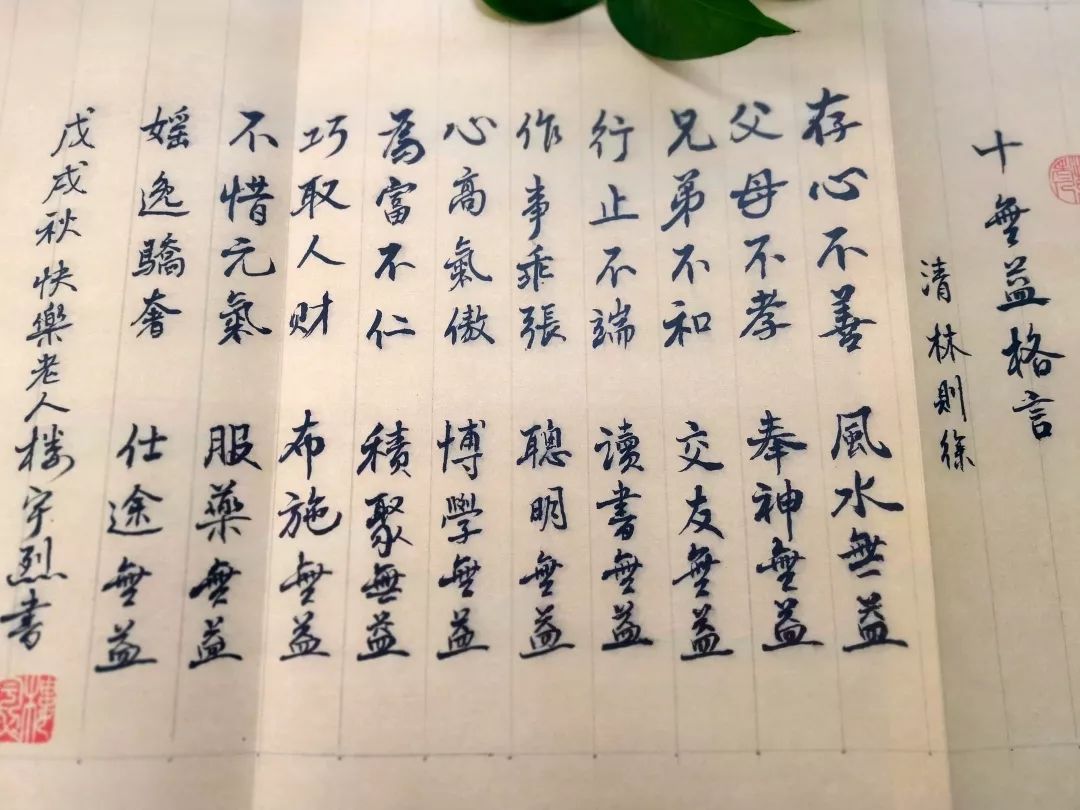 十無益格言
清 林則徐
存心不善 風水無益
父母不孝 奉神無益
兄弟不和 交友無益
行止不端 读書無益
作事乖張 聰明無益
心高氣傲 博學無益
為富不仁 積聚無益
巧取人财 布施無益
不惜元氣 服藥無益
婬逸驕奢 仕途無益
戊戌秋 快樂老人 楼宇烈書